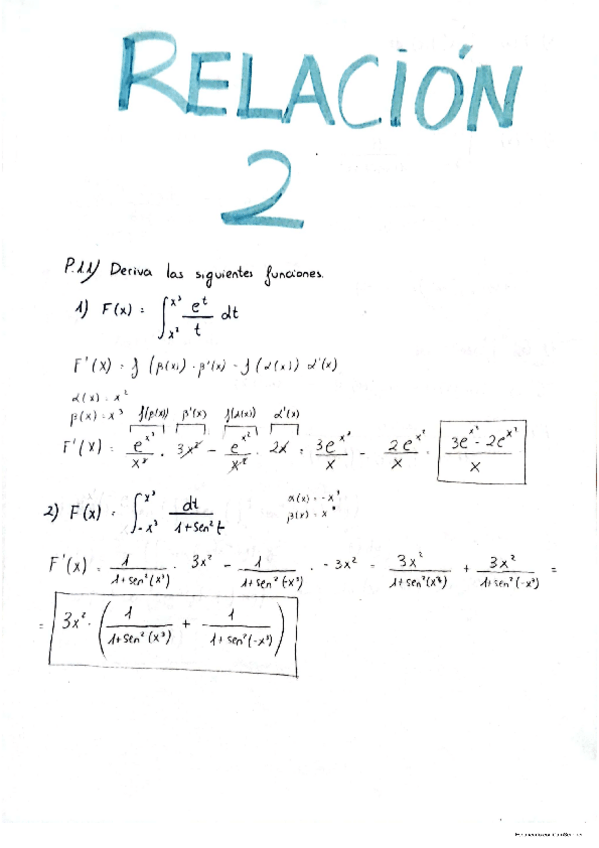 RELACIÓN
2
P.11) Deriva las siguientes funciones.
1) F(x) = ∫_{x²}^{x³} e^t/t dt
F'(x) = f(β(x)) · β'(x) - f(α(x)) α'(x)
α(x) = x²
β(x) = x³ f(β(x)) β'(x) f(α(x)) α'(x)
F'(x) = e^{x³}/x³ · 3x² - e^{x²}/x² · 2x = 3e^{x³}/x - 2e^{x²}/x = (3e^{x³} - 2e^{x²})/x
2) F(x) = ∫_{-x³}^{x³} dt/(1+sen²t) α(x) = -x³
β(x) = x³
F'(x) = 1/(1+sen²(x³)) · 3x² - 1/(1+sen²(-x³)) · -3x² = 3x²/(1+sen²(x³)) + 3x²/(1+sen²(-x³)) =
= 3x² · (1/(1+sen²(x³)) + 1/(1+sen²(-x³)))